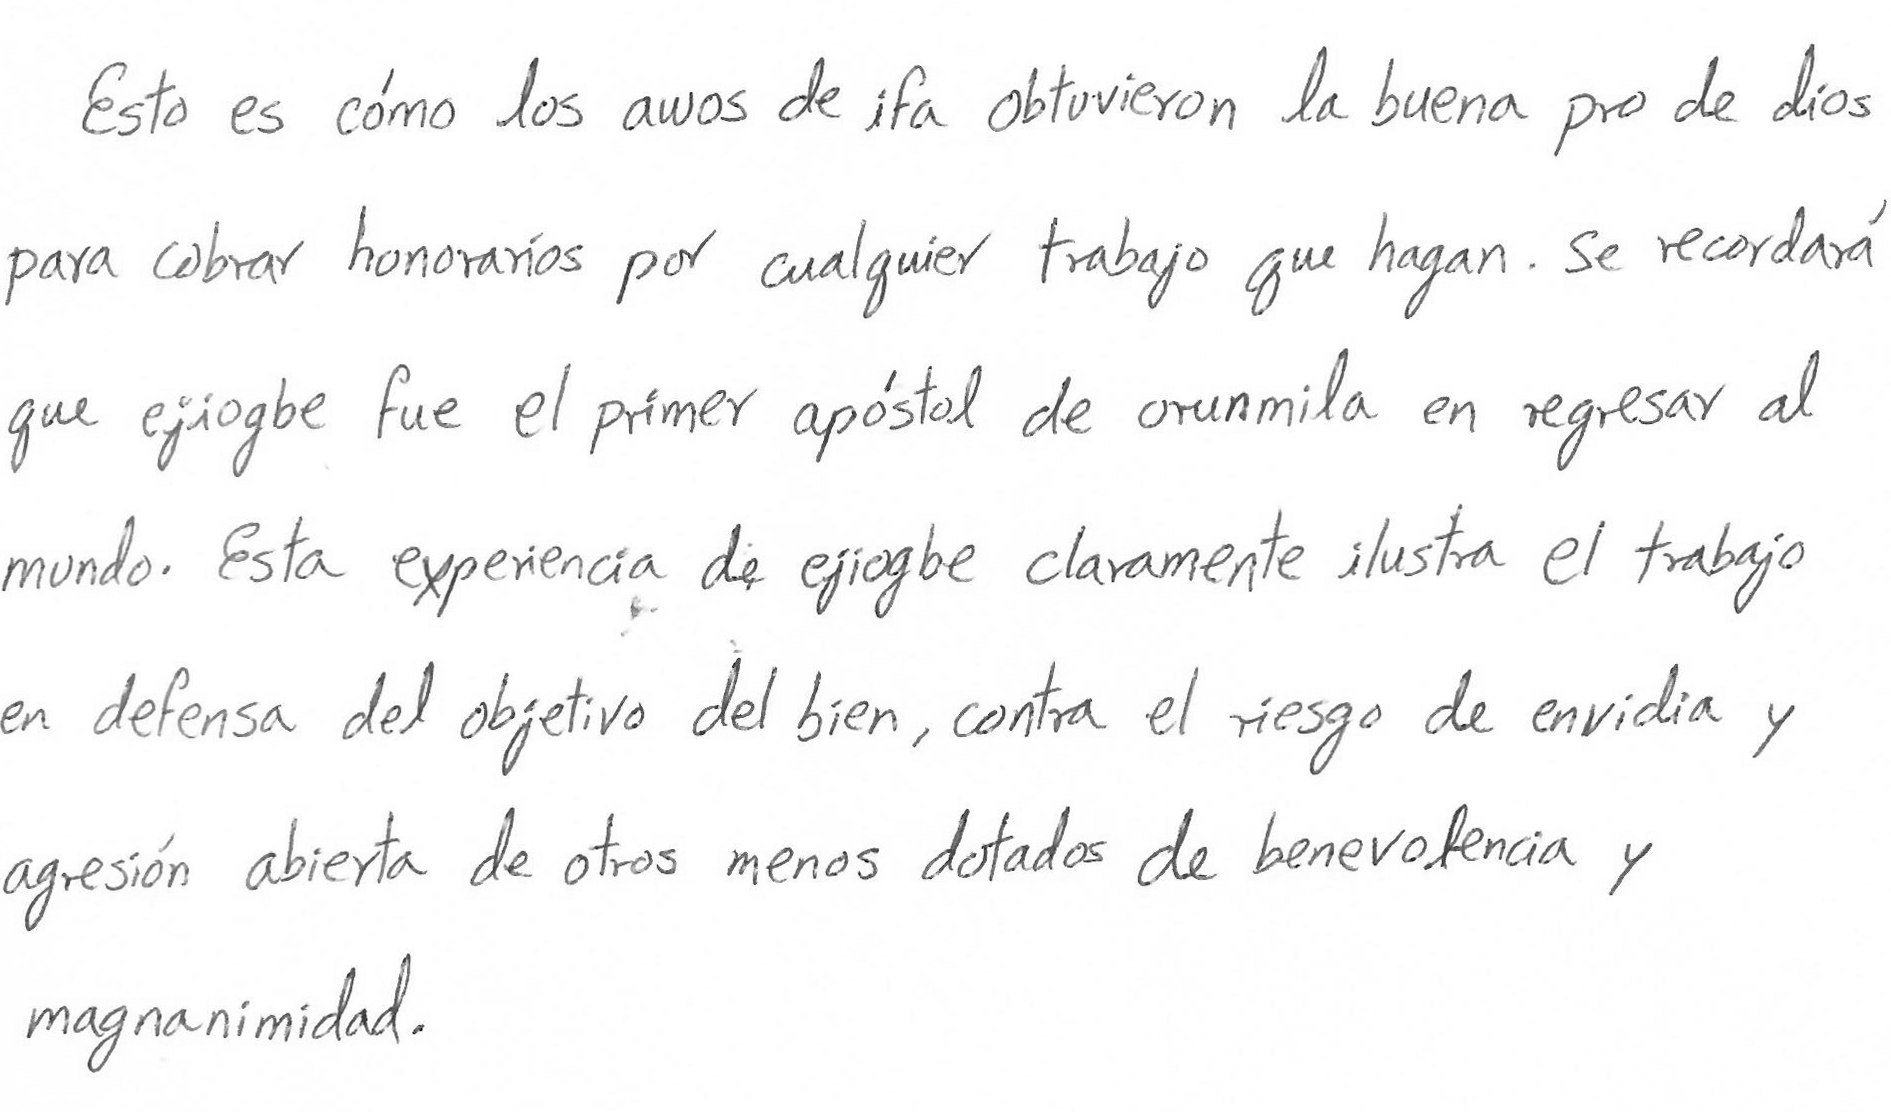 Esto es cómo los awos de ifa obtuvieron la buena pro de dios
para cobrar honorarios por cualquier trabajo que hagan. Se recordará
que ejiogbe fue el primer apóstol de orunmila en regresar al
mundo. Esta experiencia de ejiogbe claramente ilustra el trabajo
en defensa del objetivo del bien, contra el riesgo de envidia y
agresión abierta de otros menos dotados de benevolencia y
magnanimidad.